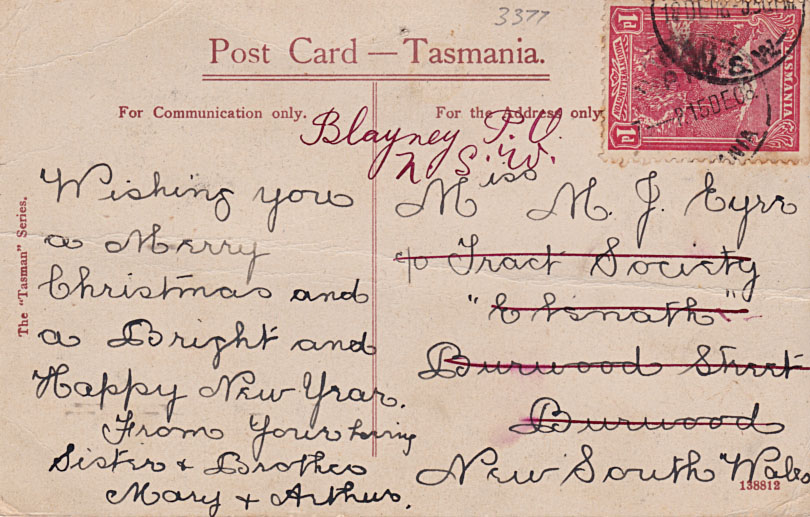 3377
Post Card — Tasmania.
For Communication only.
For the Address only
Blayney P.O.
N. S. W.
Wishing you
a Merry
Christmas and
a Bright and
Happy New Year.
From Your loving
Sister & Brother
Mary & Arthur.
Miss M. J. Eyre
c/o Tract Society
Burwood Street
Burwood
New South Wales
The "Tasman" Series.
138812
1d
1d
TASMANIA
15 DE 08